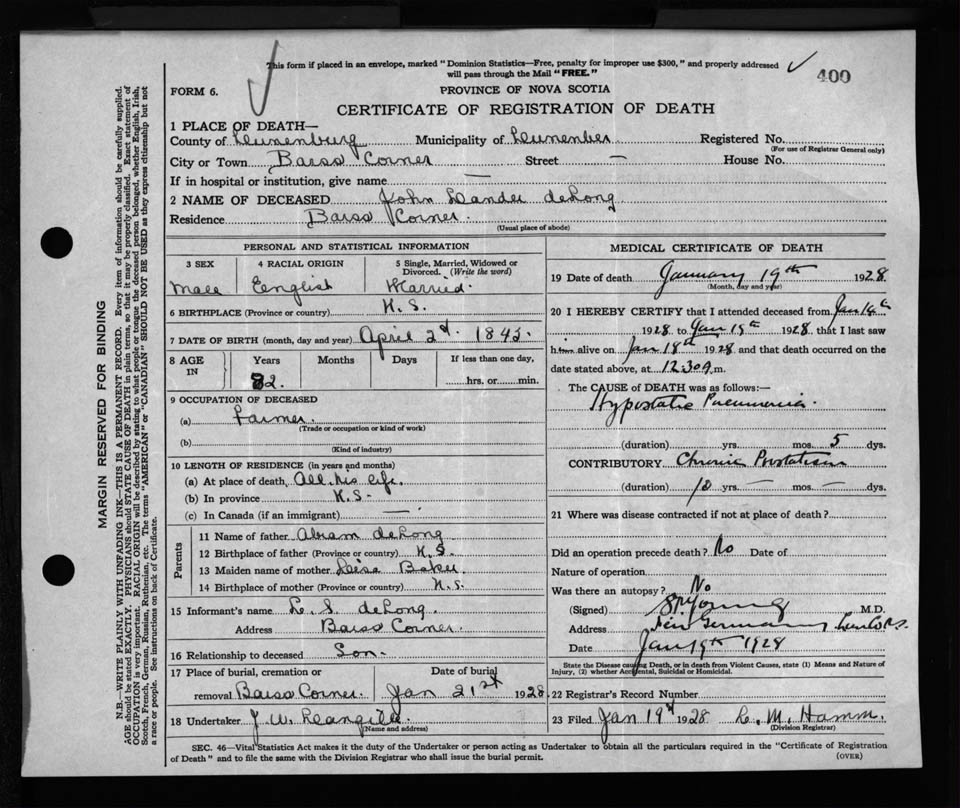 This form if placed in an envelope, marked "Dominion Statistics—Free, penalty for improper use $300," and properly addressed
will pass through the Mail "FREE."
400
FORM 6.
PROVINCE OF NOVA SCOTIA
CERTIFICATE OF REGISTRATION OF DEATH
1 PLACE OF DEATH—
County of Lunenburg Municipality of Registered No.
(For use of Registrar General only)
City or Town Barss Corner Street — House No.
If in hospital or institution, give name —
2 NAME OF DECEASED John Lander deLong
Residence Barss Corner.
(Usual place of abode)
PERSONAL AND STATISTICAL INFORMATION
3 SEX
4 RACIAL ORIGIN
5 Single, Married, Widowed or Divorced. (Write the word)
Male English Married.
6 BIRTHPLACE (Province or country) N.S.
7 DATE OF BIRTH (month, day and year) April 2d. 1845.
8 AGE IN Years Months Days If less than one day,
82. hrs. or min.
9 OCCUPATION OF DECEASED
(a) Farmer.
(Trade or occupation or kind of work)
(b)
(Kind of industry)
10 LENGTH OF RESIDENCE (in years and months)
(a) At place of death, All his life.
(b) In province N.S.
(c) In Canada (if an immigrant) —
Parents
11 Name of father Abram deLong
12 Birthplace of father (Province or country) N.S.
13 Maiden name of mother Baker
14 Birthplace of mother (Province or country) N.S.
15 Informant's name L. S. deLong.
Address Barss Corner.
16 Relationship to deceased Son.
17 Place of burial, cremation or Date of burial
removal Barss Corner. Jan 21st 1928
18 Undertaker J. W.
(Name and address)
MEDICAL CERTIFICATE OF DEATH
19 Date of death January 19th 1928
(Month, day and year)
20 I HEREBY CERTIFY that I attended deceased from Jan
1928 to Jan 19th 1928, that I last saw
him alive on Jan 18th 1928 and that death occurred on the
date stated above, at 12.30 a.m.
The CAUSE of DEATH was as follows:—
Hypostatic Pneumonia.
(duration) yrs. mos. 5 dys.
CONTRIBUTORY Chronic
(duration) 10 yrs. — mos. — dys.
21 Where was disease contracted if not at place of death?
Did an operation precede death? No Date of
Nature of operation
Was there an autopsy? No
(Signed) Young M.D.
Address New Germany Lun Co N.S.
Date Jan 19th 1928
State the Disease causing Death, or in death from Violent Causes, state (1) Means and Nature of
Injury, (2) whether Accidental, Suicidal or Homicidal.
22 Registrar's Record Number
23 Filed Jan 19 1928 L. M. Hamm.
(Division Registrar)
SEC. 46—Vital Statistics Act makes it the duty of the Undertaker or person acting as Undertaker to obtain all the particulars required in the "Certificate of Registration
of Death" and to file the same with the Division Registrar who shall issue the burial permit.
(OVER)
MARGIN RESERVED FOR BINDING
N.B.—WRITE PLAINLY WITH UNFADING INK—THIS IS A PERMANENT RECORD. Every item of information should be carefully supplied.
AGE should be stated EXACTLY. PHYSICIANS should STATE CAUSE OF DEATH in plain terms, so that it may be properly classified. Exact statement of
OCCUPATION is very important. RACIAL ORIGIN will be described by stating to what people or tongue the deceased person belonged, whether English, Irish,
Scotch, French, German, Russian, Ruthenian, etc. The terms "AMERICAN" or "CANADIAN" SHOULD NOT BE USED as they express citizenship but not
a race or people. See instructions on back of Certificate.